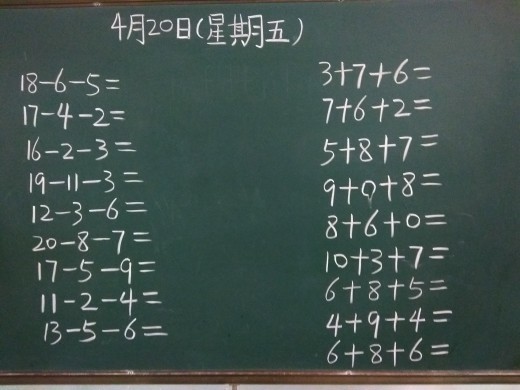 4月20日(星期五)
18-6-5=
17-4-2=
16-2-3=
19-11-3=
12-3-6=
20-8-7=
17-5-9=
11-2-4=
13-5-6=
3+7+6=
7+6+2=
5+8+7=
9+0+8=
8+6+0=
10+3+7=
6+8+5=
4+9+4=
6+8+6=